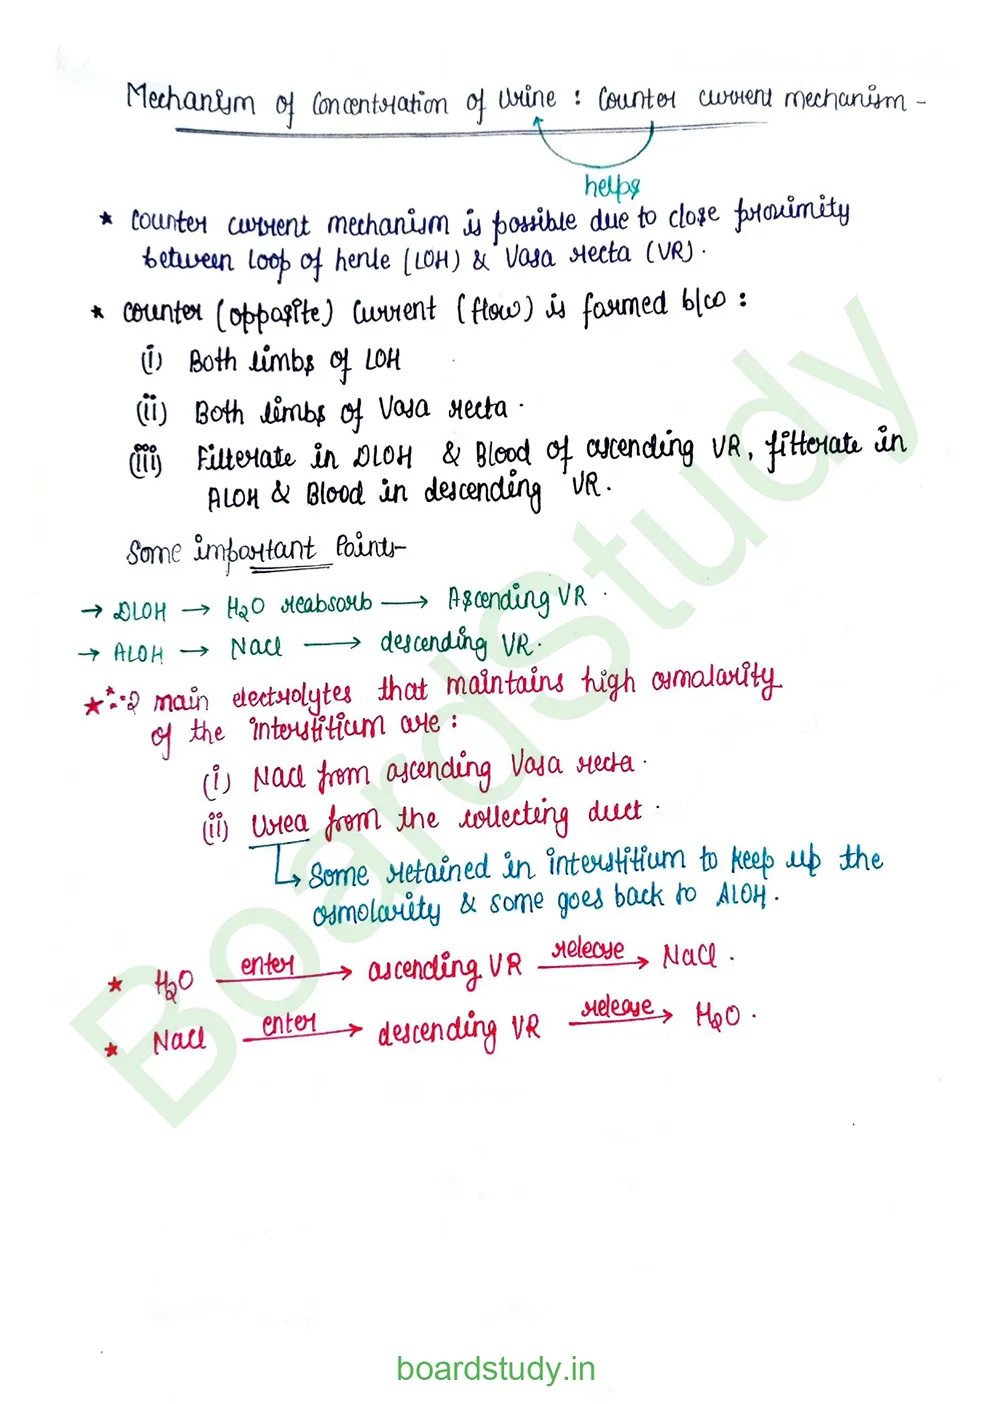 Mechanism of Concentration of Urine : Counter current mechanism -
helps
* Counter current mechanism is possible due to close proximity
between loop of henle (LOH) & Vasa recta (VR).
* Counter (opposite) Current (flow) is formed b/co :
(i) Both limbs of LOH
(ii) Both limbs of Vasa recta.
(iii) Filterate in DLOH & Blood of ascending VR, filterate in
ALOH & Blood in descending VR.
Some important Points-
→ DLOH → H2O reabsorb → Ascending VR.
→ ALOH → Nacl → descending VR.
* 2 main electrolytes that maintains high osmalarity
of the interstitium are :
(i) Nacl from ascending Vasa recta.
(ii) Urea from the collecting duct.
↳ Some retained in interstitium to keep up the
osmolarity & some goes back to ALOH.
* H2O enter → ascending VR release → Nacl.
* Nacl enter → descending VR release → H2O.
Boardstudy
boardstudy.in